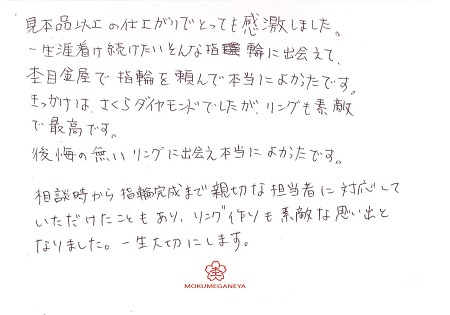 見本品以上の仕上がりでとっても感激しました。
一生涯着け続けたいそんな指輪に出会えて、
杢目金屋で指輪を頼んで本当によかったです。
きっかけは、さくらダイヤモンドでしたが、リングも素敵
で最高です。
後悔の無いリングに出会え本当によかったです。
相談時から指輪完成まで親切な担当者に対応して
いただけたこともあり、リング作りも素敵な思い出と
なりました。一生大切にします。
MOKUMEGANEYA